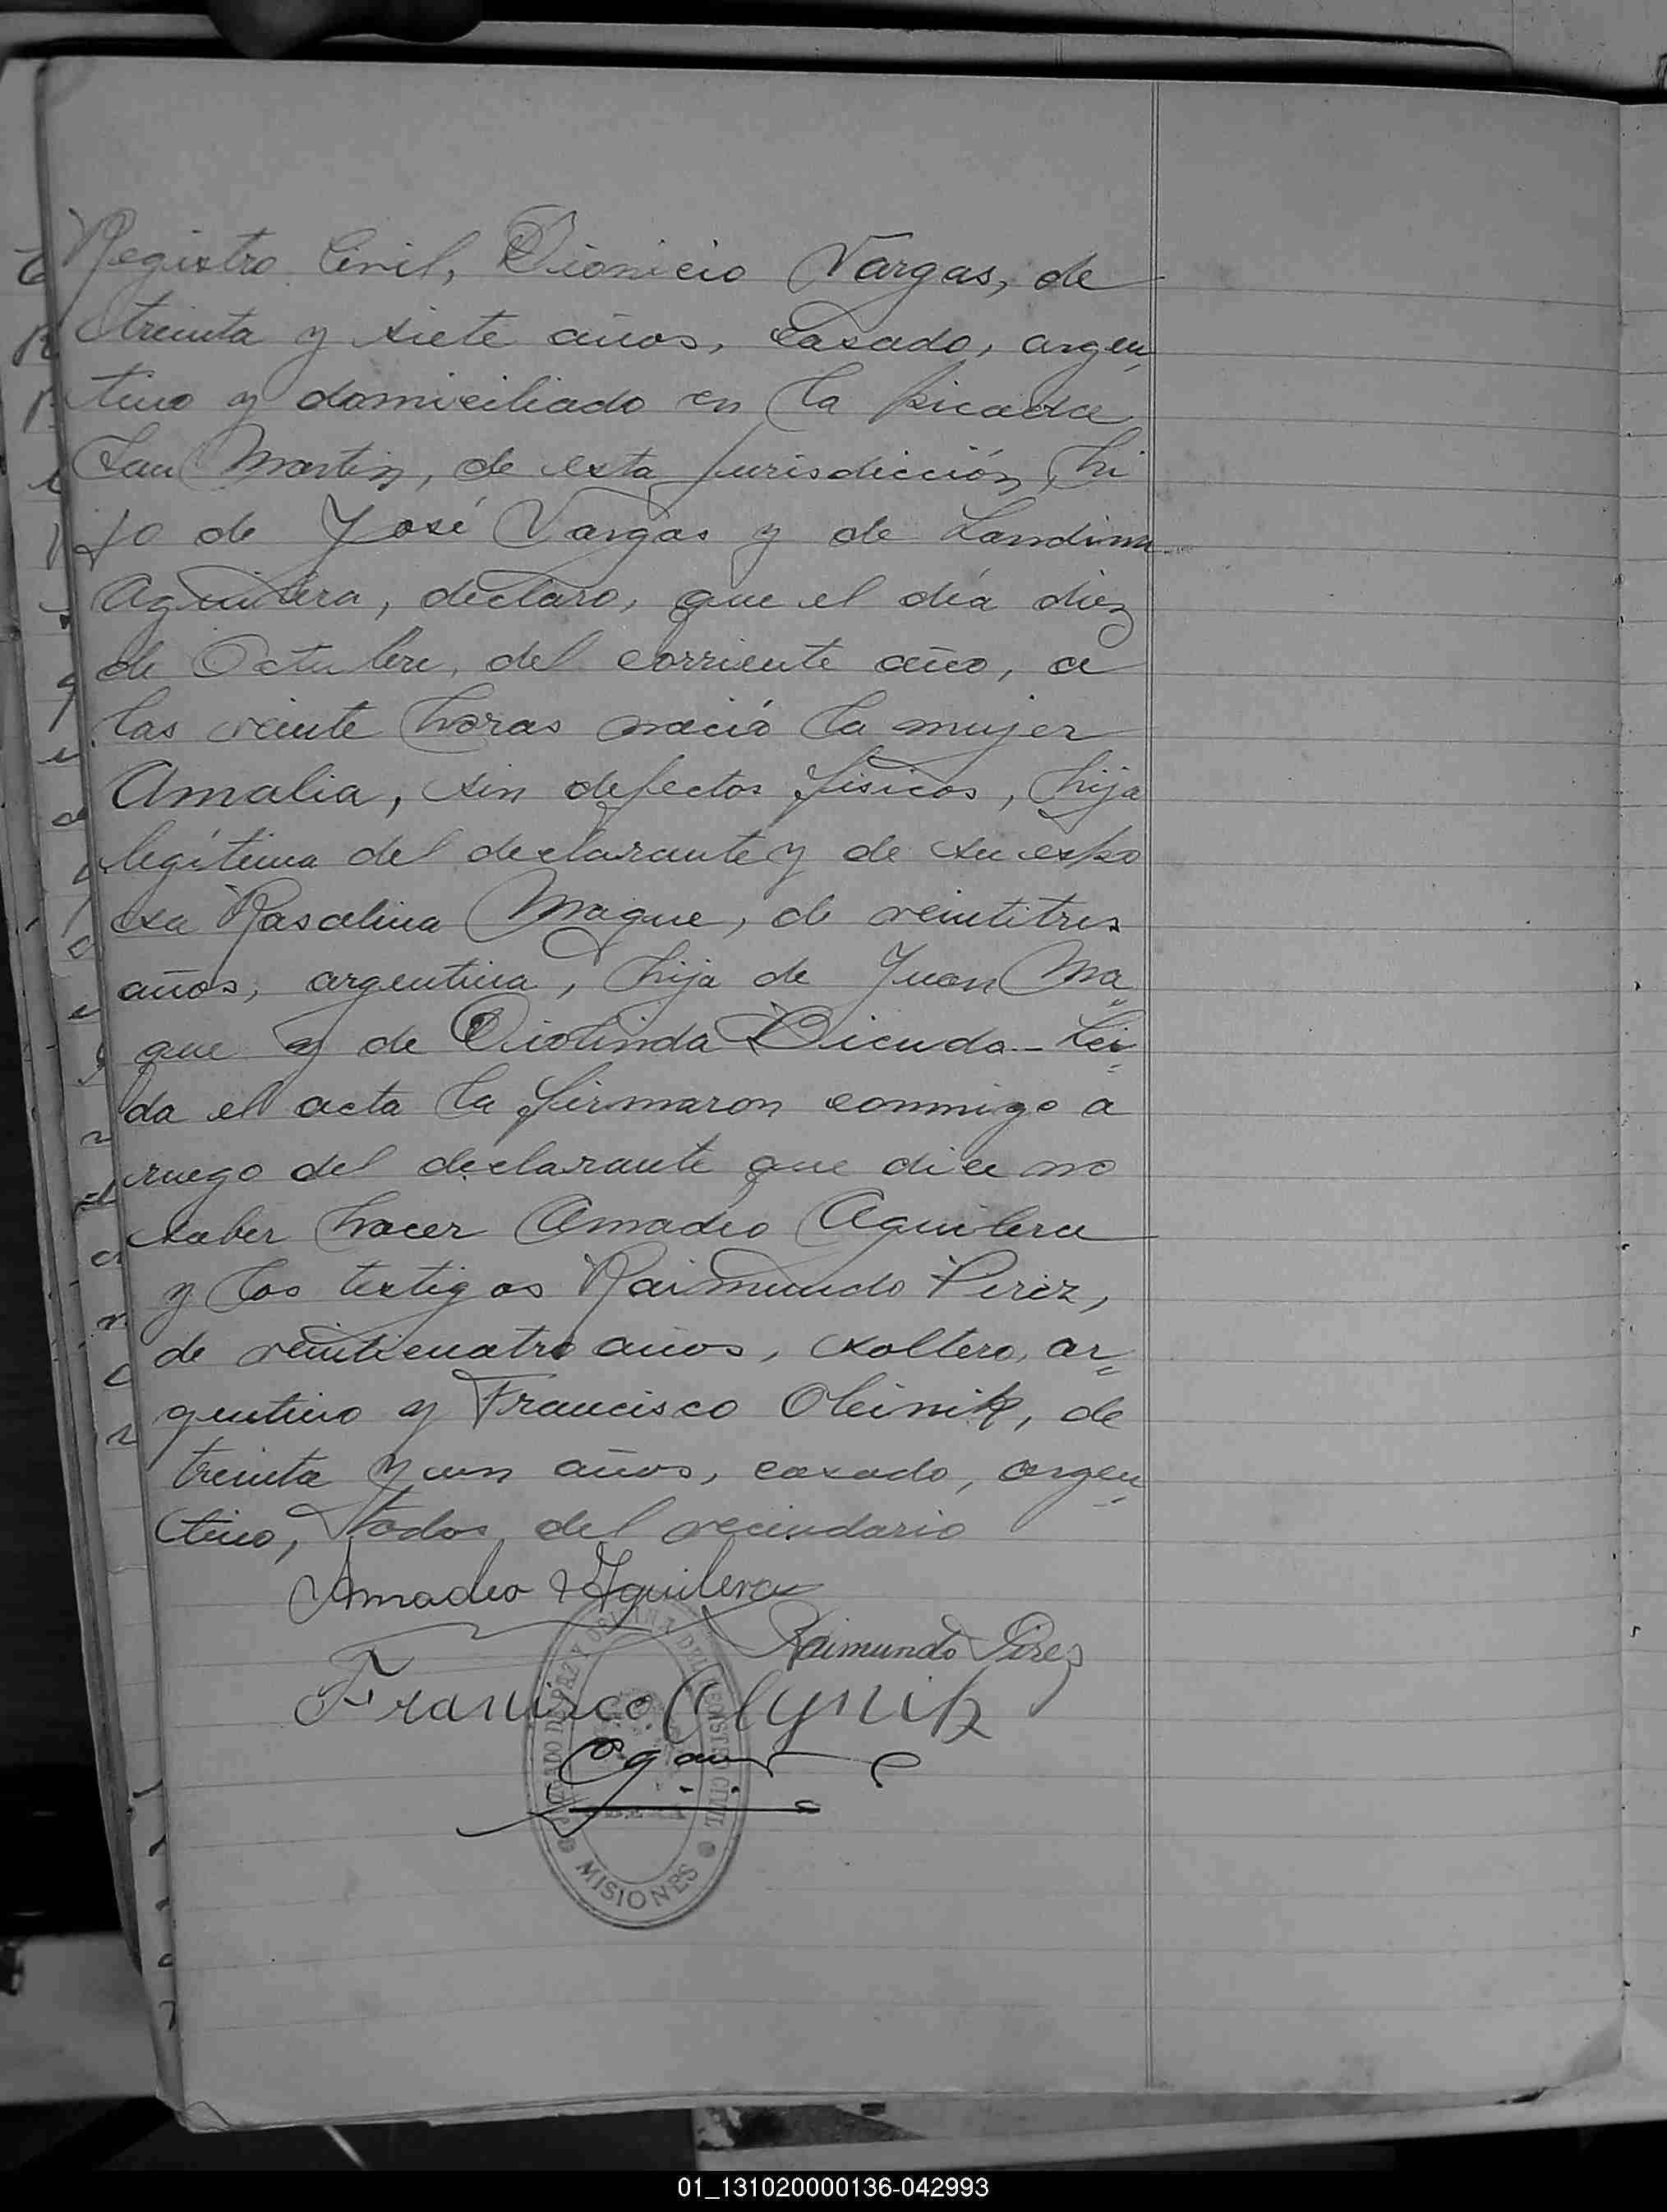 Registro Civil, Dionicio Vargas, de
treinta y siete años, casado, argen
tino y domiciliado en la picada
San Martin, de esta jurisdicción, hi
jo de José Vargas y de Landina
Aguilera, declaro, que el día diez
de Octubre, del corriente año, a
las veinte horas nació la mujer
Amalia, sin defectos físicos, hija
legítima del declarante y de su espo
sa Rosalina Maque, de veintitres
años, argentina, hija de Juan Ma=
que y de Diolinda Bicudo - Leí=
da el acta la firmaron conmigo a
ruego del declarante que dice no
saber hacer Amadeo Aguilera
y los testigos Raimundo Pirez,
de veinticuatro años, soltero, ar=
gentino y Francisco Oleinik, de
treinta y un años, casado, argen=
tino, todos del vecindario
Amadeo Aguilera
Raimundo Pirez
Francisco Olynik
JUZGADO DE PAZ Y OFICINA DEL REGISTRO CIVIL
MISIONES
01_131020000136-042993